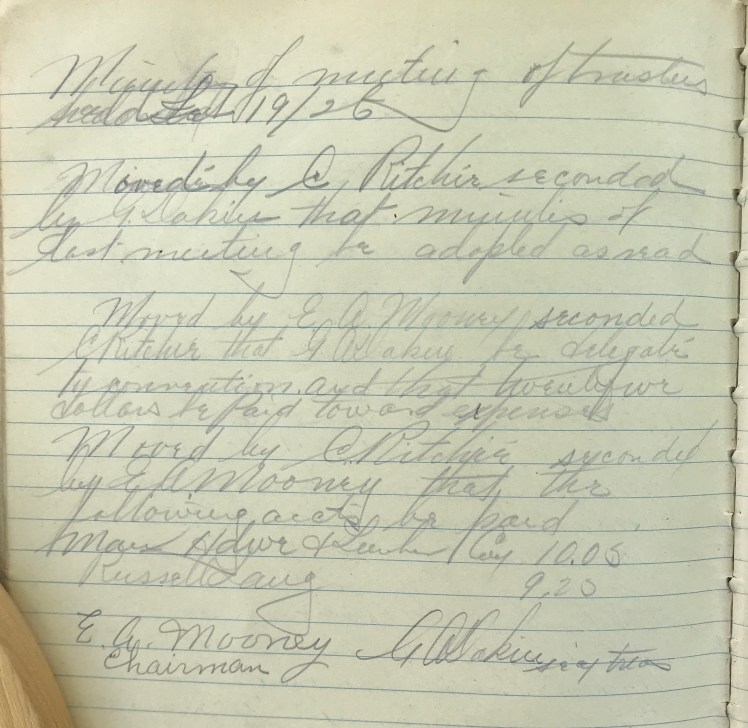 Minutes of meeting of trustees
held Feb 19/26
Moved by C. Ritchie seconded
by G. Dakin that minutes of
last meeting be adopted as read
Moved by E. A. Mooney seconded
C Ritchie that G A Dakin be delegate
to convention and that twenty five
dollars be paid toward expenses
Moved by C. Ritchie seconded
by E A Mooney that the
following accts be paid
Hdwe & Lumber Coy 10.05
Russell 9.20
E. A. Mooney G A Dakin sec treas
Chairman